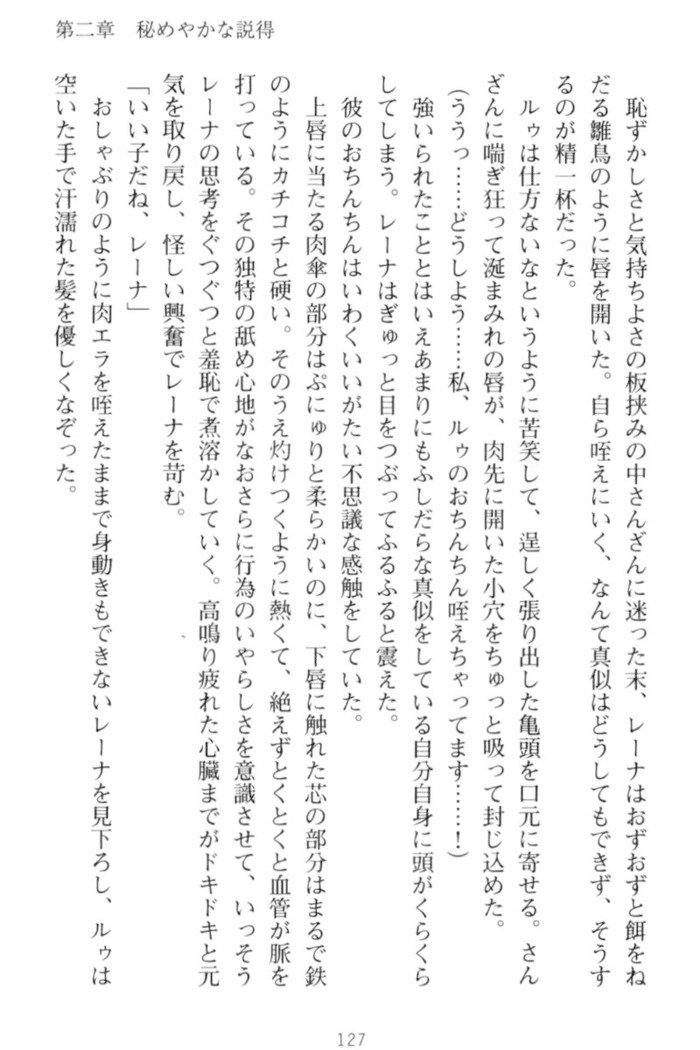 第二章　秘めやかな説得
　恥ずかしさと気持ちよさの板挟みの中さんざんに迷った末、レーナはおずおずと餌をね
だる雛鳥のように唇を開いた。自ら咥えにいく、なんて真似はどうしてもできず、そうす
るのが精一杯だった。
　ルゥは仕方ないなというように苦笑して、逞しく張り出した亀頭を口元に寄せる。さん
ざんに喘ぎ狂って涎まみれの唇が、肉先に開いた小穴をちゅっと吸って封じ込めた。
（ううっ……どうしよう……私、ルゥのおちんちん咥えちゃってます……！）
　強いられたこととはいえあまりにもふしだらな真似をしている自分自身に頭がくらくら
してしまう。レーナはぎゅっと目をつぶってふるふると震えた。
　彼のおちんちんはいわくいいがたい不思議な感触をしていた。
　上唇に当たる肉傘の部分はぷにゅりと柔らかいのに、下唇に触れた芯の部分はまるで鉄
のようにカチコチと硬い。そのうえ灼けつくように熱くて、絶えずとくとくと血管が脈を
打っている。その独特の舐め心地がなおさらに行為のいやらしさを意識させて、いっそう
レーナの思考をぐつぐつと羞恥で煮溶かしていく。高鳴り疲れた心臓までがドキドキと元
気を取り戻し、怪しい興奮でレーナを苛む。
「いい子だね、レーナ」
　おしゃぶりのように肉エラを咥えたままで身動きもできないレーナを見下ろし、ルゥは
空いた手で汗濡れた髪を優しくなぞった。
127